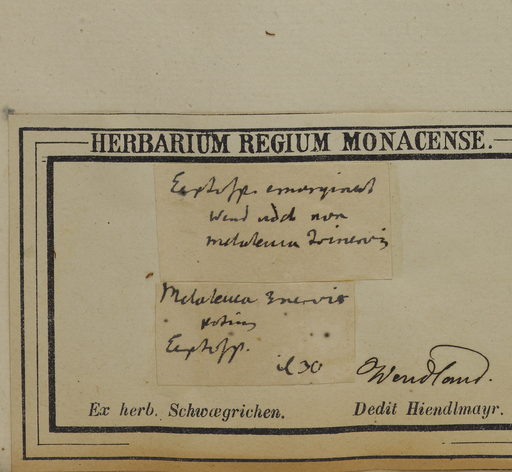 HERBARIUM REGIUM MONACENSE.
Leptosp. emarginat
Wend
melaleuca trinervis
Melaleuca 3nervis
potius
Leptosp.
30
Wendland.
Ex herb. Schwægrichen.
Dedit Hiendlmayr.